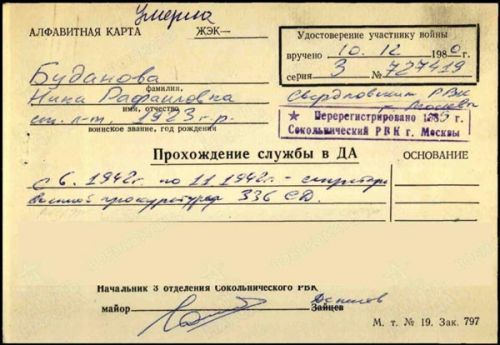 умерла
АЛФАВИТНАЯ КАРТА ЖЭК—
Удостоверение участнику войны
вручено 10.12 1980 г.
серия 3 № 727419
Буданова
фамилия,
Нина Рафаиловна
имя, отчество
ст. л-т. 1923 г.р.
воинское звание, год рождения
Свердловским РВК
г. Москвы
★ Перерегистрировано 1985 г.
Сокольнический РВК г. Москвы
Прохождение службы в ДА ОСНОВАНИЕ
с 6.1942г. по 11.1942г. – секретарь
военной прокуратуры 336 СД.
Начальник 3 отделения Сокольнического РВК
майор Зайцев
М. т. № 19. Зак. 797